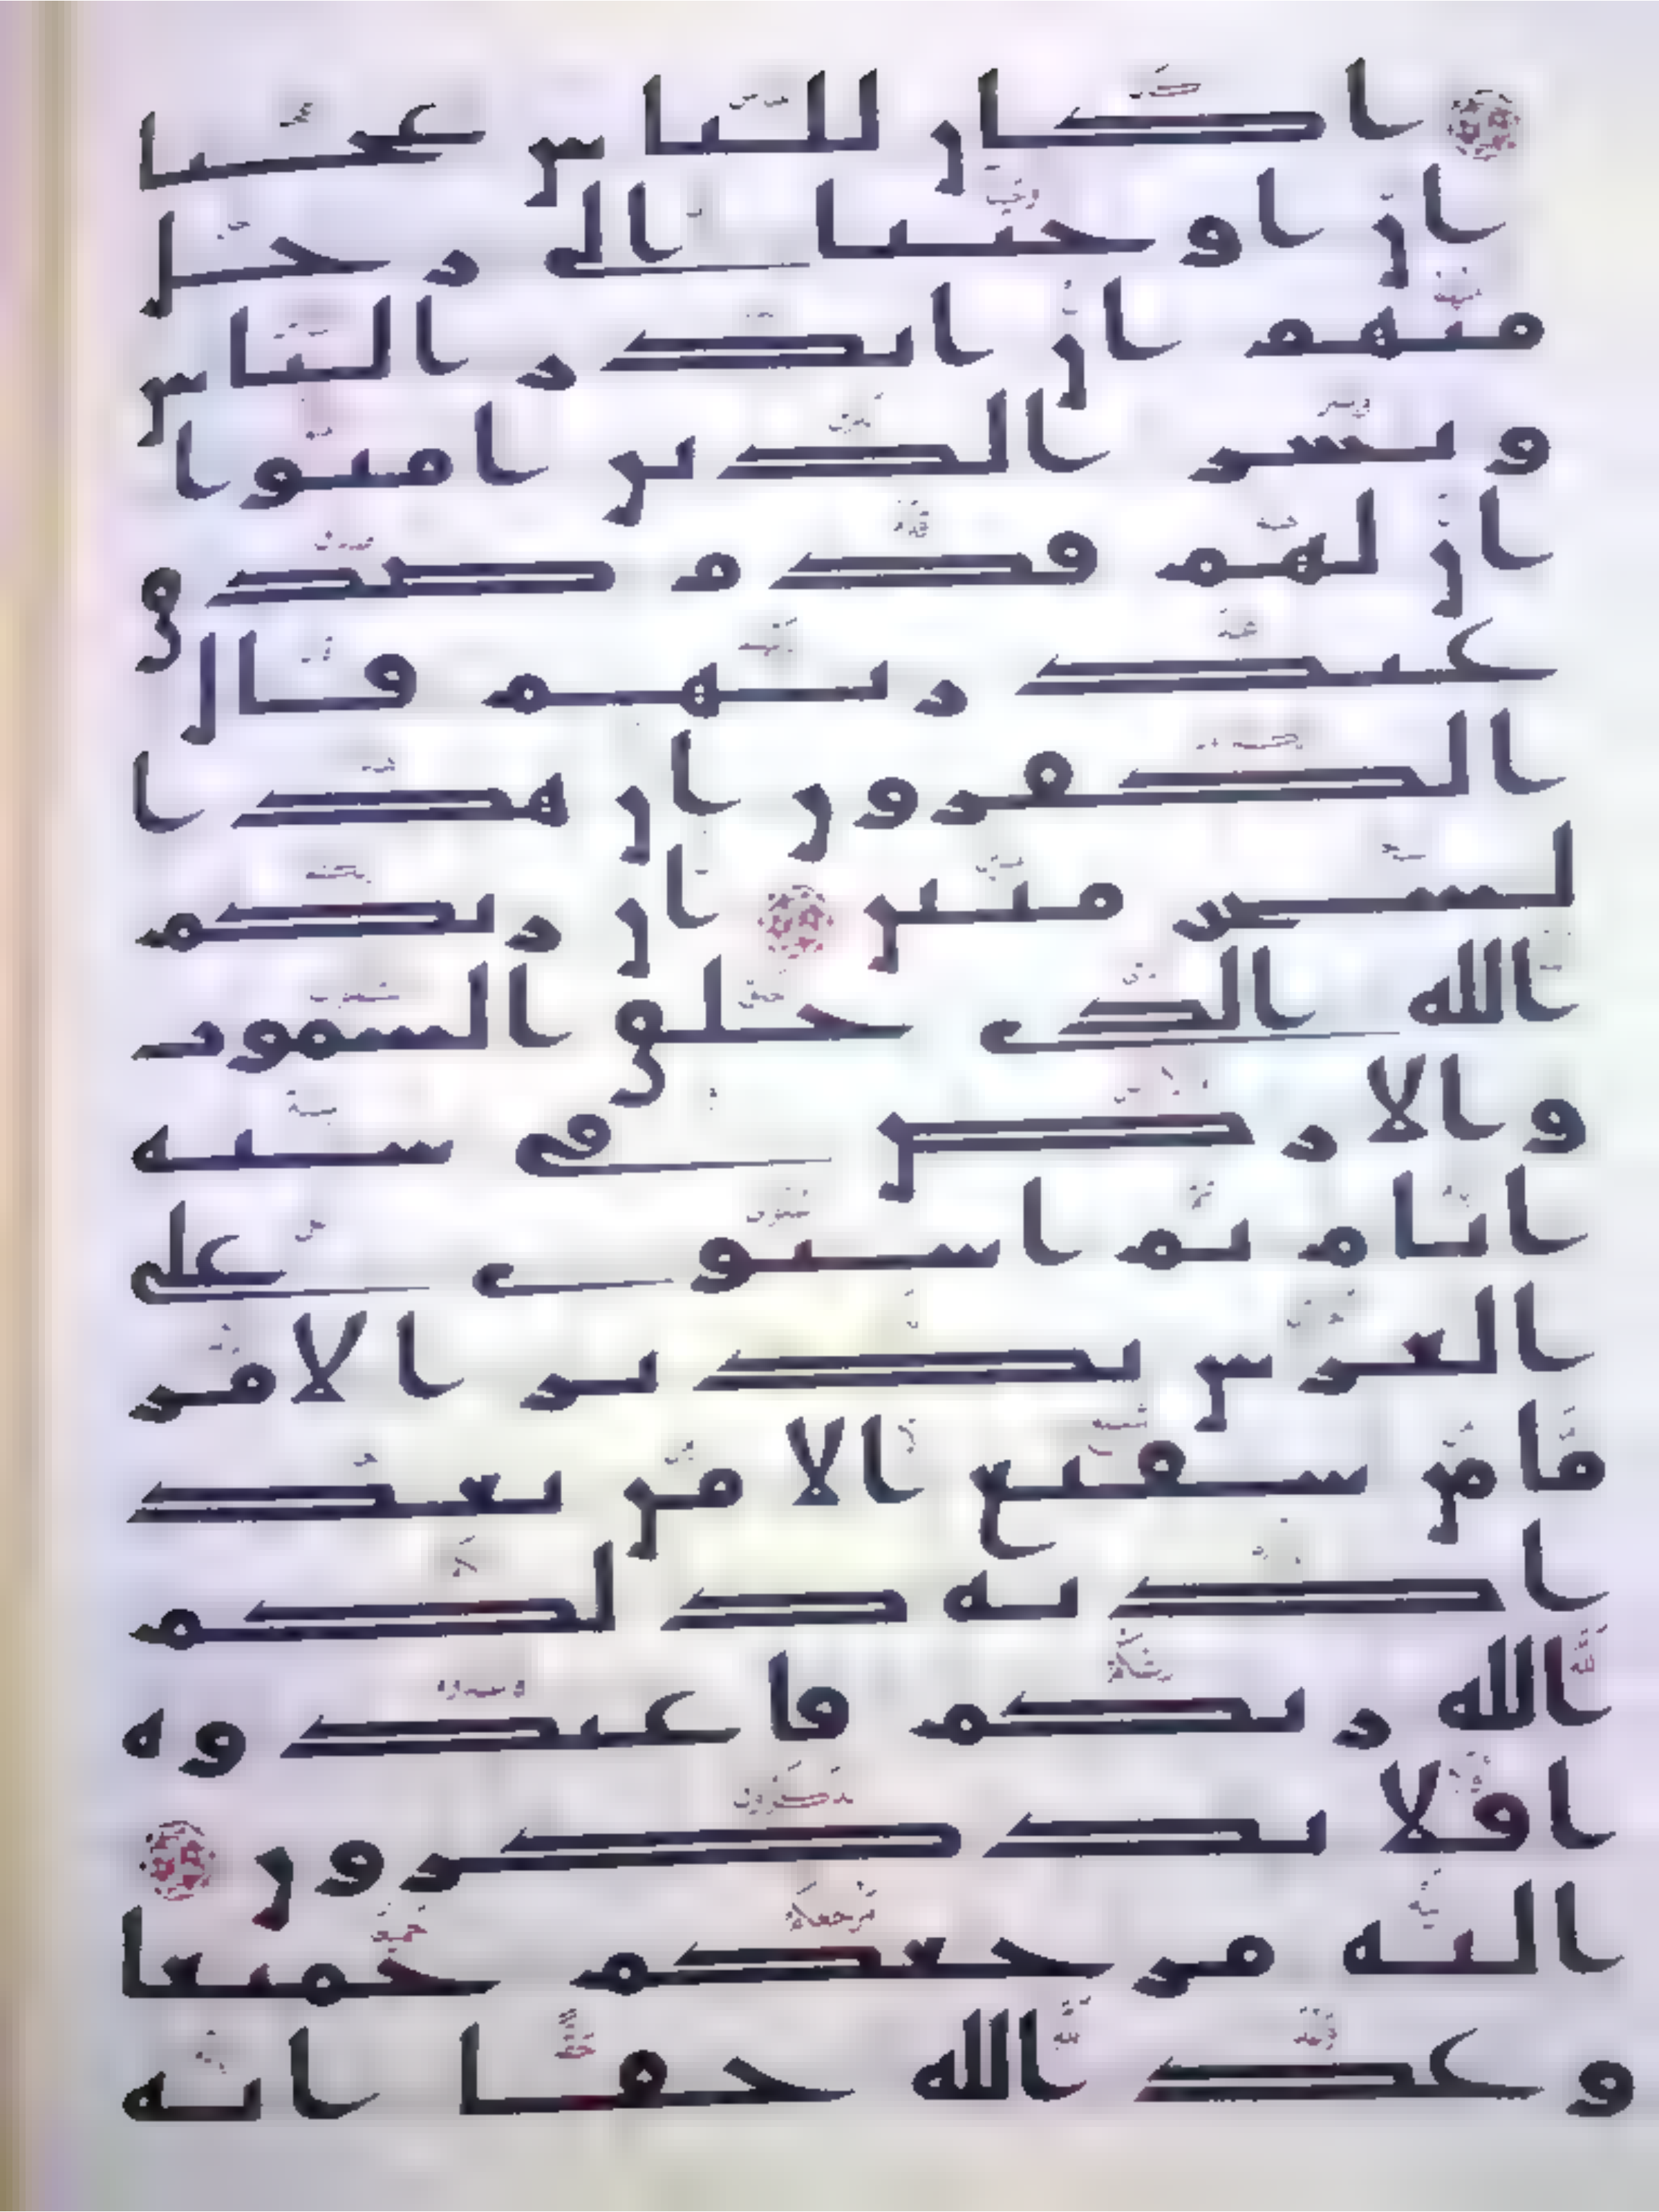 اكان للناس عجبا
ان اوحينا الى رجل
منهم ان انذر الناس
وبشر الذين امنوا
ان لهم قدم صدق
عند ربهم قال
الكفرون ان هذا
لسحر مبين ان ربكم
الله الذى خلق السموت
والارض فى ستة
ايام ثم استوى على
العرش يدبر الامر
ما من شفيع الا من بعد
اذنه ذلكم
الله ربكم فاعبدوه
افلا تذكرون
اليه مرجعكم جميعا
وعد الله حقا انه